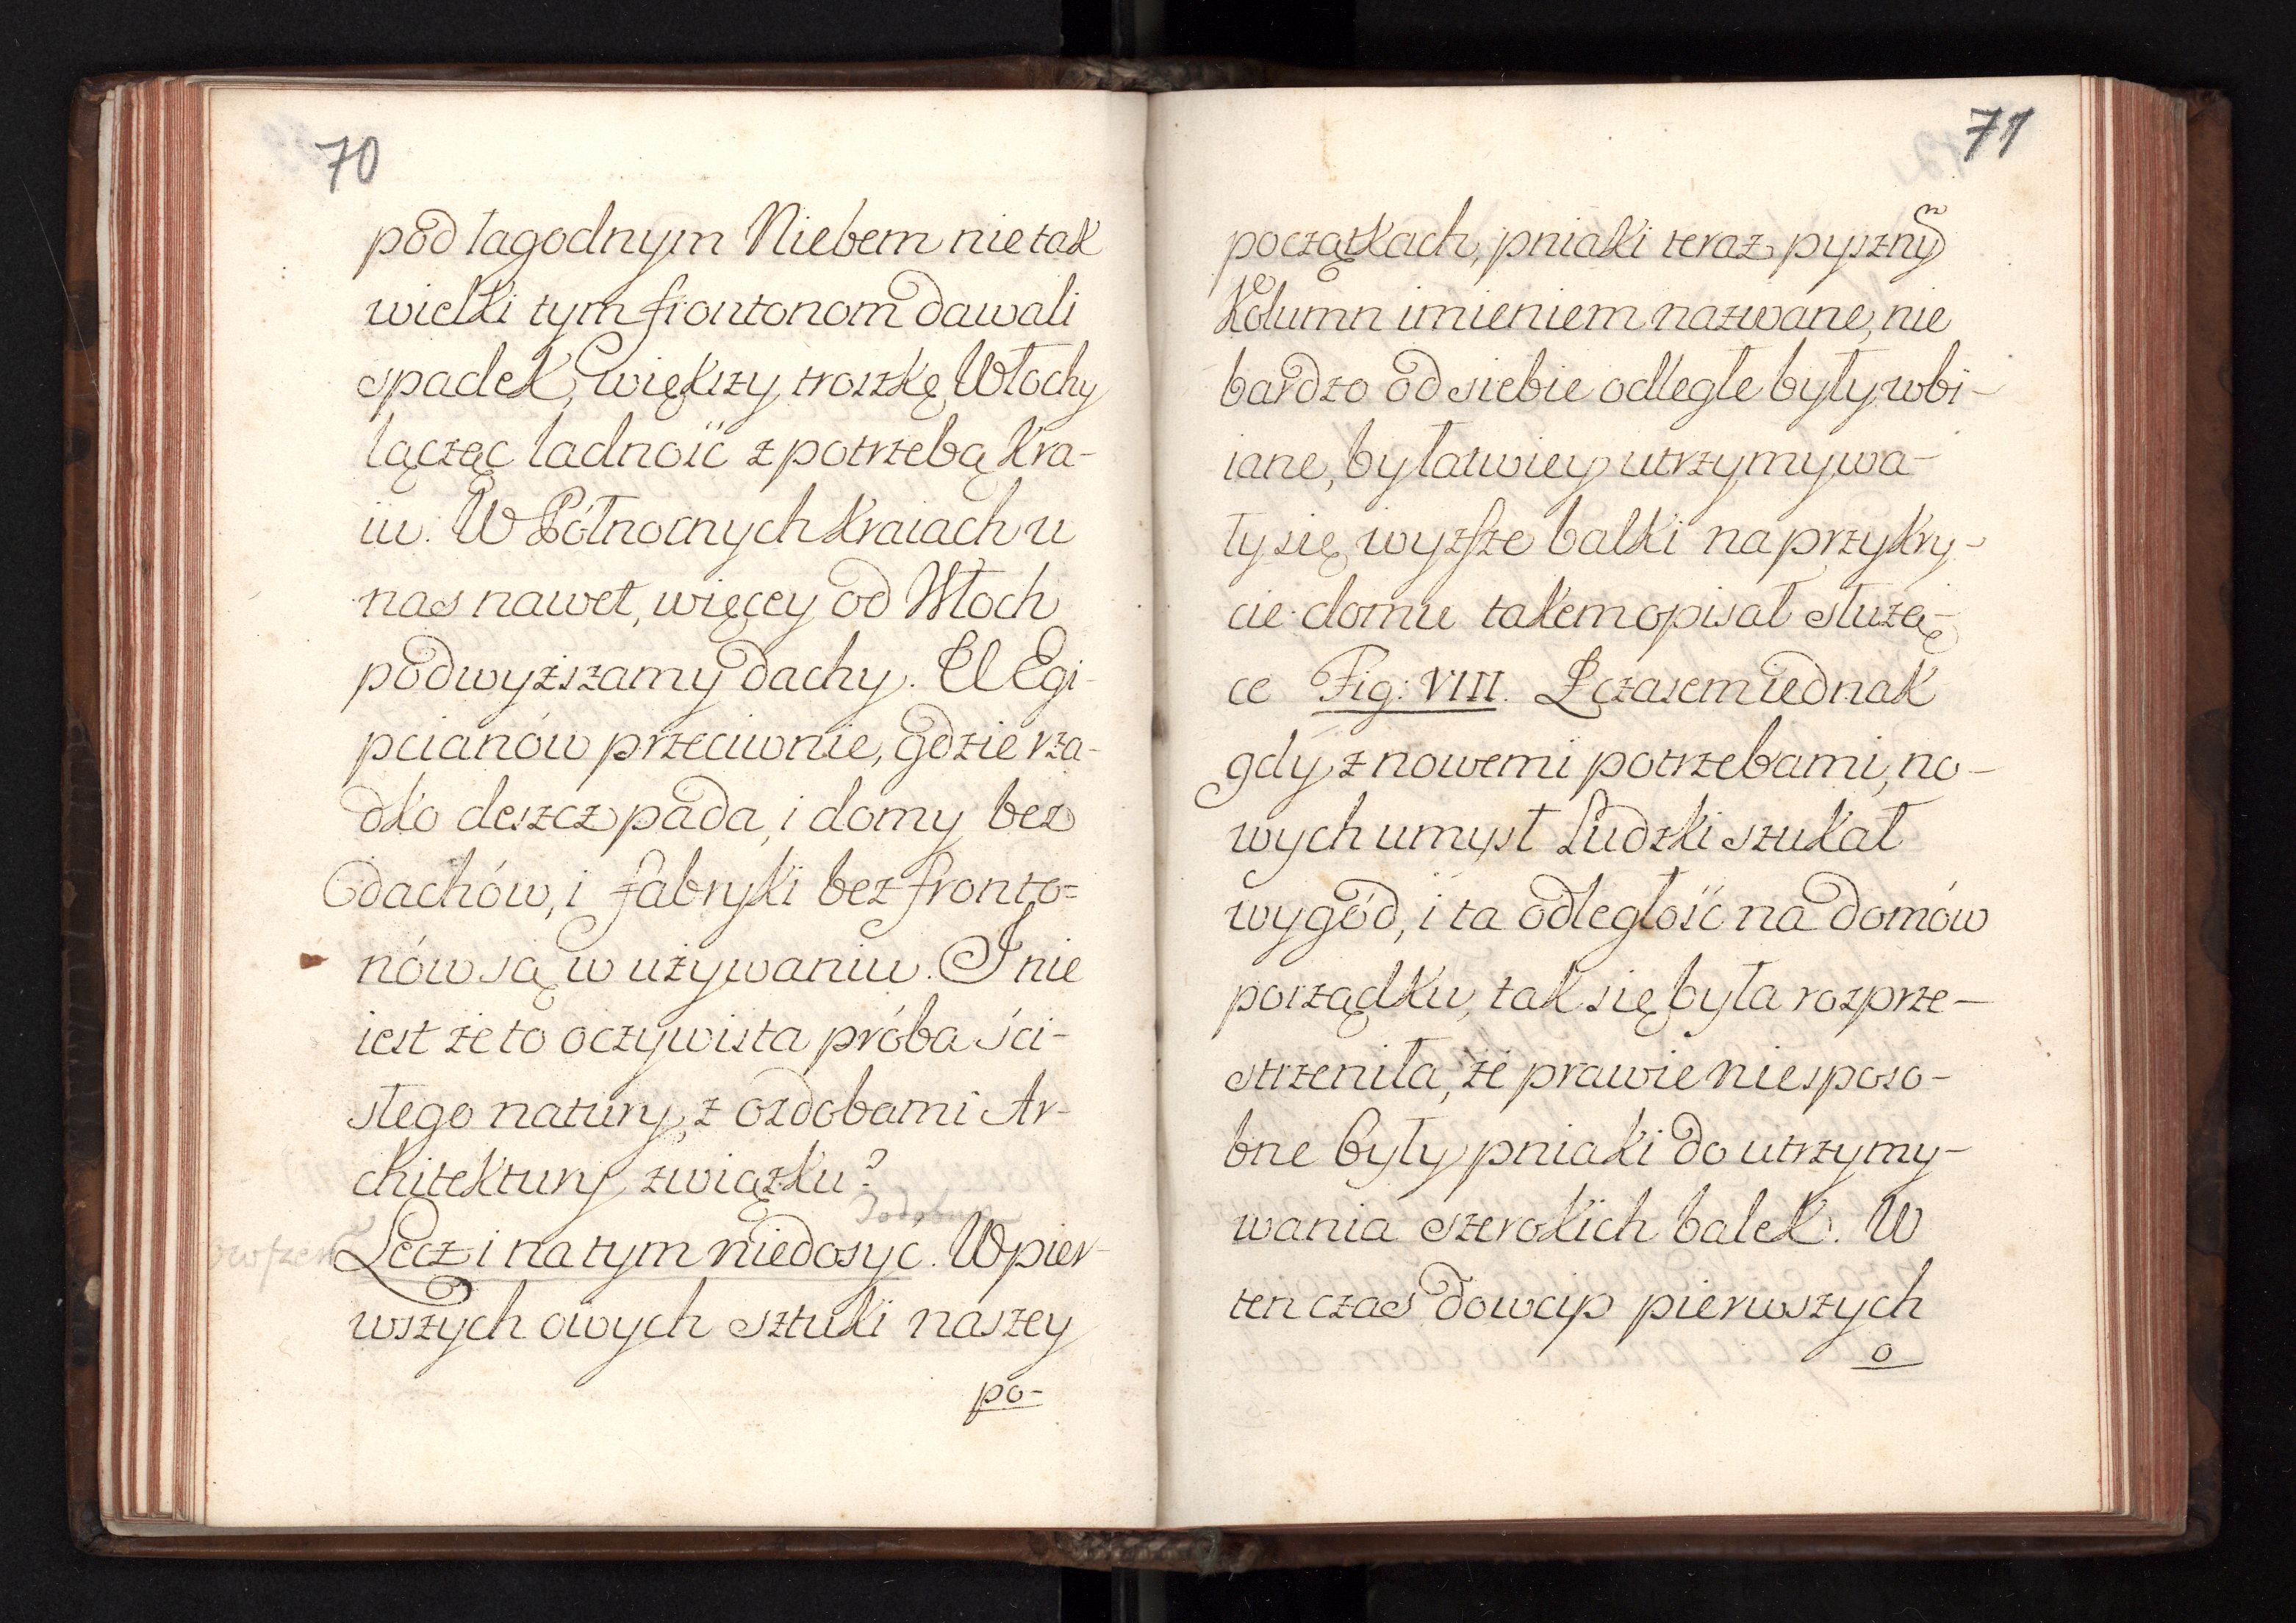 70
pod łagodnym Niebem nie tak
wielki tym frontonom dawali
spadek, większy troszkę Włochy
łącząc ladność z potrzebą kra-
iu. W Północnych kraiach u
nas nawet, więcey od Włoch
podwyższamy dachy. U Egi-
pcianów przeciwnie, gdzie rza-
dko deszcz pada, i domy bez
dachów, i fabryki bez fronto=
nów są w używaniu. I nie
iest że to oczywista próba ści-
słego natury, z ozdobami Ar-
chitektury związku?
Lecz i na tym niedosyć. W pier-
wszych owych sztuki naszey
po-
71
początkach, pniaki teraz pysznym
Kolumn imieniem nazwane, nie
bardzo od siebie odległe były wbi-
iane, by łatwiey utrzymywa-
ły się wyzsze balki na przykry-
cie domu takem opisał służą-
ce Fig: VIII. Z czasem iednak
gdy z nowemi potrzebami, no-
wych umysł Ludzki szukał
wygód, i ta odległość na domów
porządku, tak się była rozprze-
strzeniła, że prawie niesposo-
bne były pniaki do utrzymy-
wania szerokich balek. W
ten czas dowcip pierwszych
o